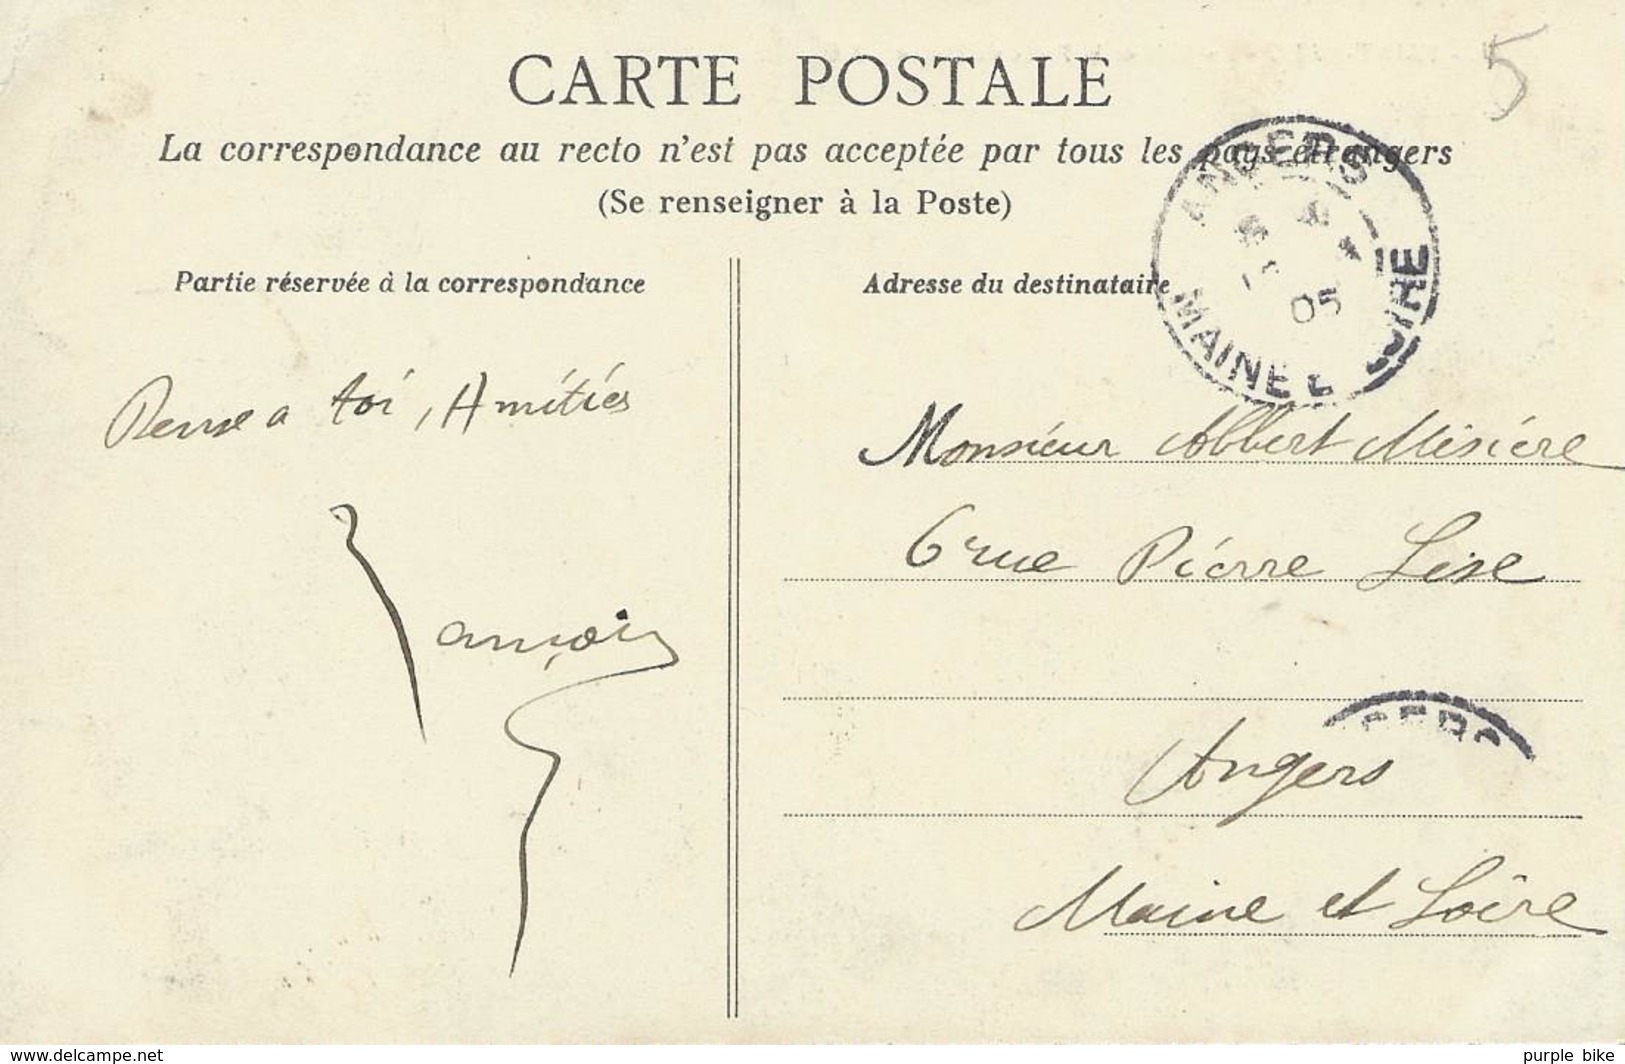 5
CARTE POSTALE
La correspondance au recto n'est pas acceptée par tous les pays étrangers
(Se renseigner à la Poste)
ANGERS
05
MAINE ET LOIRE
Partie réservée à la correspondance
Adresse du destinataire
Pense a toi, Amitiés
Monsieur Albert Mésière
6 rue Pierre Lise
Angers
Maine et Loire
www.delcampe.net
purple bike